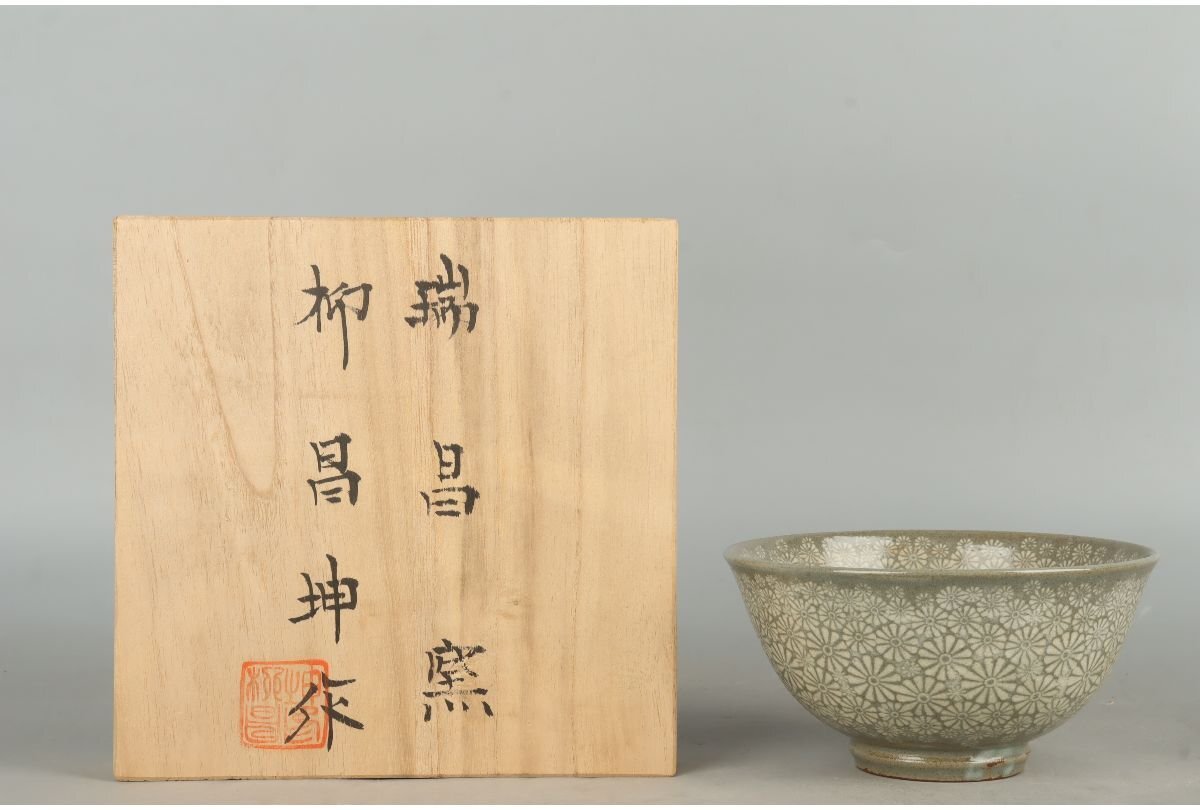 瑞昌窯
柳昌坤作